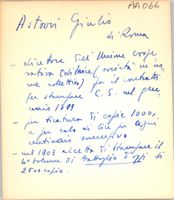 AA066
Astorri Giulio
di Roma
- direttore dell'Unione Coope
rativa Editrice (società in no
me collettivo) per il contratto
per stampare C.S. nel gen
naio 1899
- per tiratura di copie 1000,
e per carta da lire per ogni
centinaio successivo
- nel 1903 accetta di stampare il
4° volume di Battaglie d'oggi di
2500 copie.